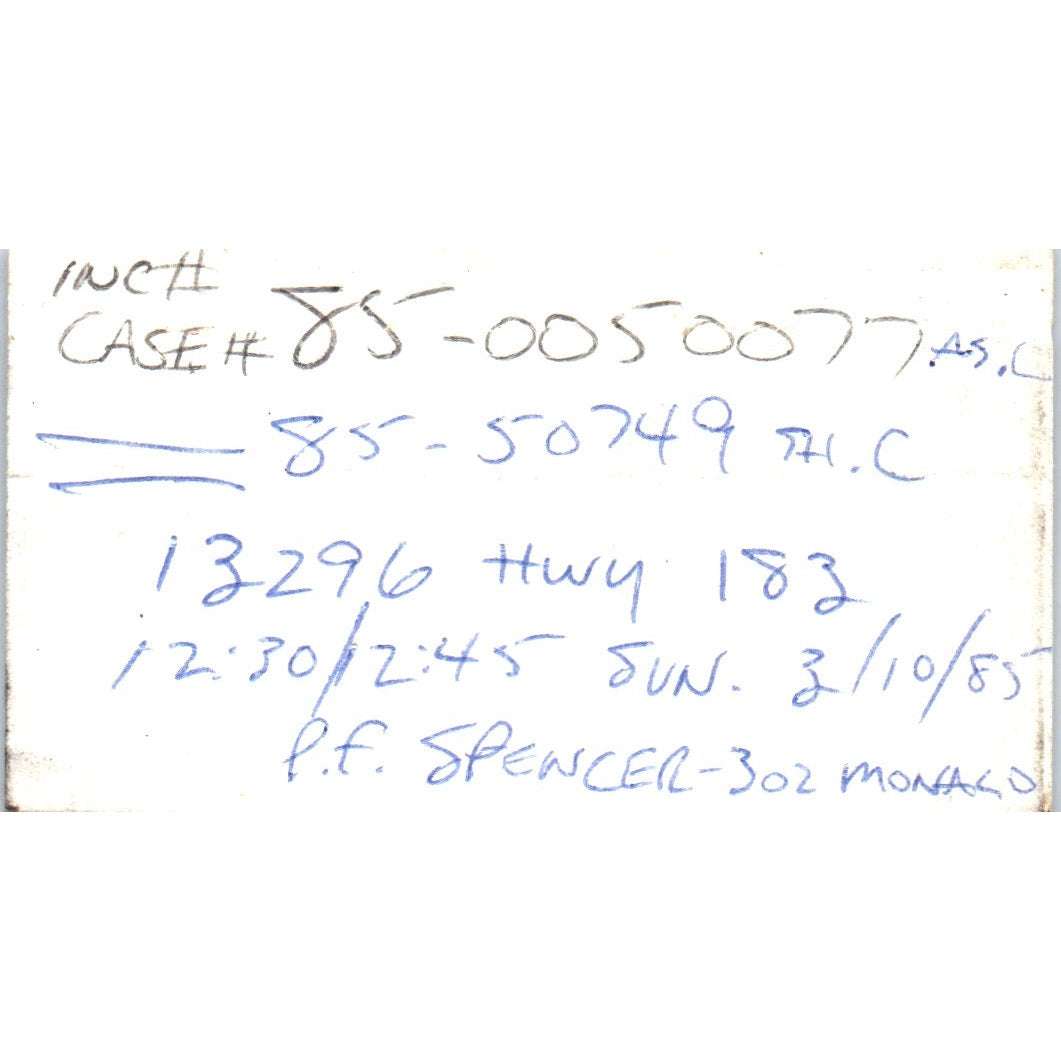 INC#
CASE # 85-0050077 A.S.C
85-50749 M.C
13296 HWY 183
12:30/12:45 SUN. 3/10/85
P.F. SPENCER-302 MONACO